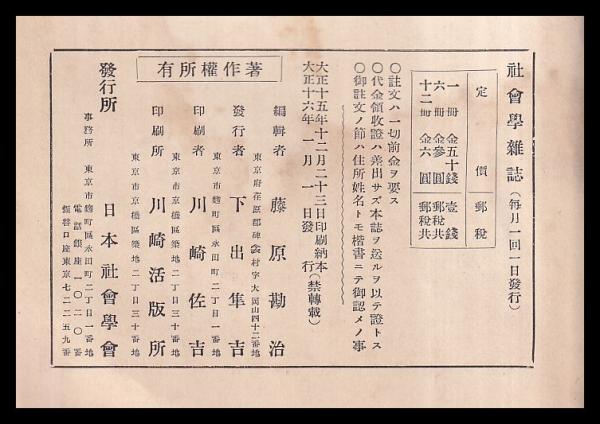 社會學雜誌（每月一回一日發行）
定價 郵税
一冊 金五十錢 壹錢
六冊 金參圓 郵税共
十二冊 金六圓 郵税共
○註文ハ一切前金ヲ要ス
○代金領收證ハ差出サズ本誌ヲ送ルヲ以テ證トス
○御註文ノ節ハ住所姓名トモ楷書ニテ御認メノ事
大正十五年十二月二十三日印刷納本
大正十六年一月一日發行（禁轉載）
著作權所有
編輯者 藤原勘治
東京府荏原郡碑衾村字大岡山四十二番地
發行者 下出隼吉
東京市麹町區永田町二丁目一番地
印刷者 川崎佐吉
東京市京橋區築地二丁目三十番地
印刷所 川崎活版所
東京市京橋區築地二丁目三十番地
發行所 日本社會學會
事務所 東京市麹町區永田町二丁目一番地
電話銀座一〇二〇番
振替口座東京七二二五九番